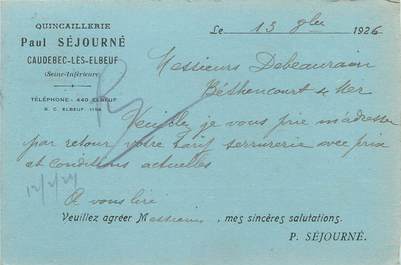 QUINCAILLERIE
Paul SÉJOURNÉ
CAUDEBEC-LES-ELBEUF
(Seine-Inférieure)
TÉLÉPHONE : 440 ELBEUF
R. C. ELBEUF 1104
Le 13 9bre 1926
Messieurs Debeaurain
Béthencourt s/ Mer
Veuillez je vous prie m'adresser
par retour votre tarif serrurerie avec prix
et conditions actuelles
A vous lire
Veuillez agréer Messieurs, mes sincères salutations.
P. SÉJOURNÉ.